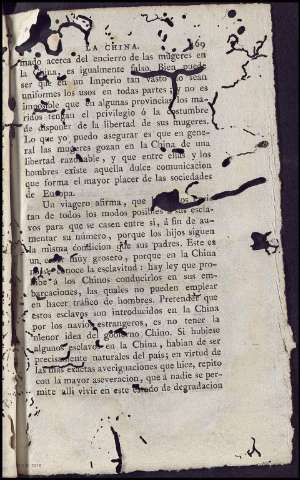 LA CHINA. 269
mado acerca del encierro de las mugeres en
la China, es igualmente falso. Bien puede
ser que en un Imperio tan vasto no sean
uniformes los usos en todas partes; y no es
imposible que en algunas provincias los ma-
ridos tengan el privilegió ó la costumbre
de disponer de la libertad de sus mugeres.
Lo que yo puedo asegurar es que en gene-
ral las mugeres gozan en la China de una
libertad razonable, y que entre ellas y los
hombres existe aquella dulce comunicacion
que forma el mayor placer de las sociedades
de Europa.
Un viagero afirma, que los
tan de todos los modos posibles sus escla-
vos para que se casen entre sí, á fin de au-
mentar su número, porque los hijos siguen
la misma condicion que sus padres. Este es
un muy grosero, porque en la China
no se conoce la esclavitud: hay ley que pro-
hibe á los Chinos conducirlos en sus em-
barcaciones, las quales no pueden emplear
en hacer tráfico de hombres. Pretender que
estos esclavos son introducidos en la China
por los navios estrangeros, es no tener la
menor idea del gobierno Chino. Si hubiese
algunos esclavos en la China, habian de ser
precisamente naturales del pais; en virtud de
las mas exactas averiguaciones que hice, repito
con la mayor aseveracion, que á nadie se per-
mite alli vivir en este estado de degradacion